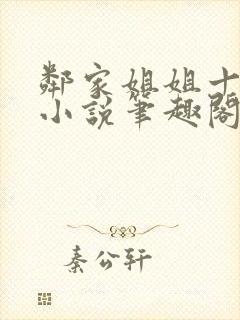 鄰家姐姐十
小說筆趣閣
秦公轩